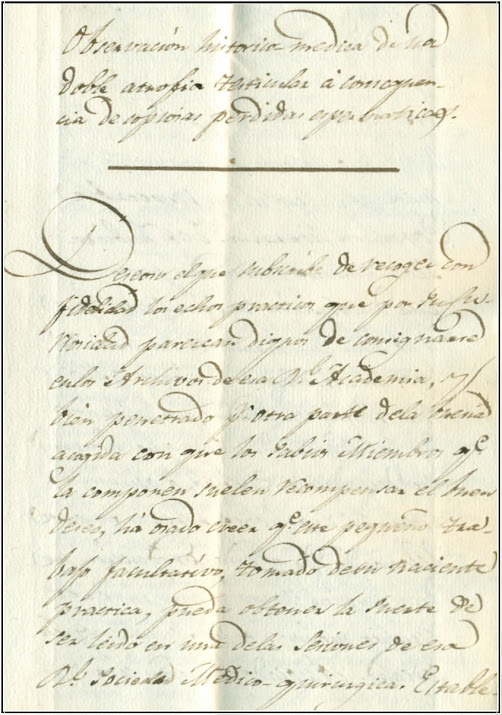 Observación historico-medica de una
doble atrofia testicular á consequen-
cia de copiosas perdidas espermaticas.
Deseoso el que subscribe de recoger con
fidelidad los echos practicos que por su
parezcan dignos de consignarse
en los Archivos de esa Rl. Academia, y
bien penetrado por otra parte de la buena
acogida con que los sabios Miembros qe.
la componen suelen recompensar el buen
deseo, há osado creer qe. este pequeño tra-
bajo facultativo, tomado de su naciente
practica, pueda obtener la suerte de
ser leido en una de las sesiones de esa
Rl. Sociedad Medico-quirurgica. Estable